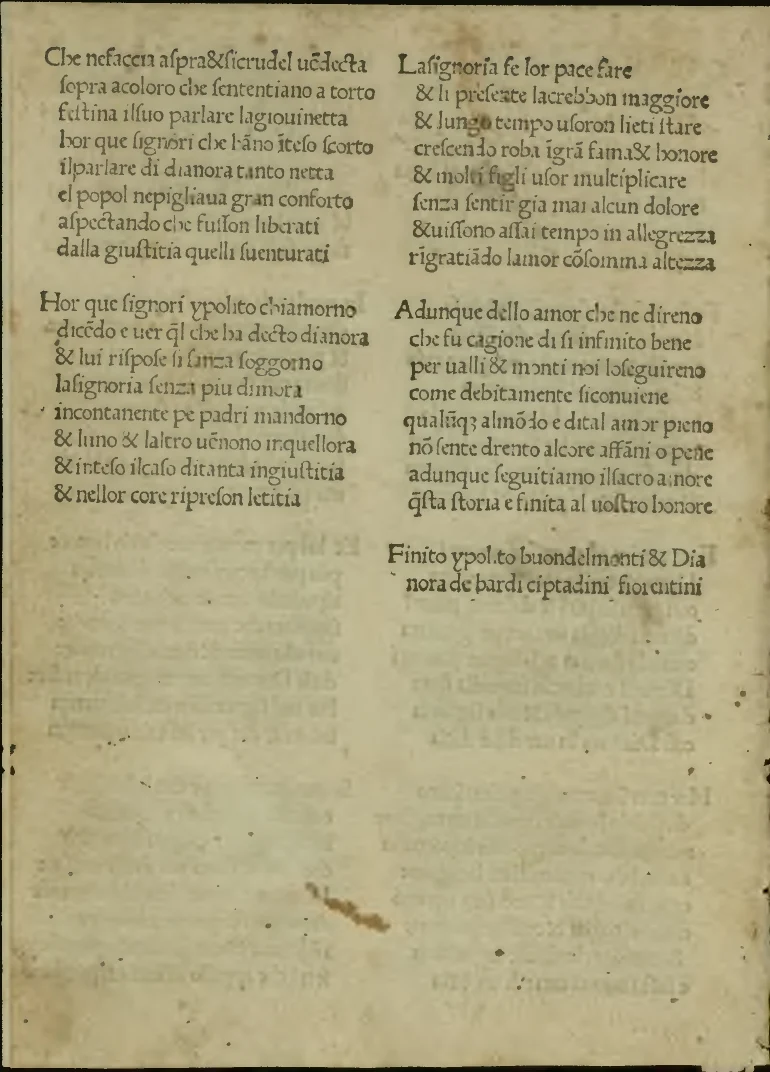 Che nefaccia aſpra&ſicrudel uēdecta
ſopra acoloro che ſententiano a torto
feſtina ilſuo parlare lagiouinetta
hor que ſignori che hāno īteſo ſcorto
ilparlare di dianora tanto netta
el popol nepigliaua gran conforto
aſpectando che fuſſon liberati
dalla giuſtitia quelli ſuenturati
Hor que ſignori ypolito chiamorno
dicēdo e uer q̄l che ha decto dianora
& lui riſpoſe ſi ſanza ſoggorno
laſignoria ſenza piu dimora
incontanente pe padri mandorno
& luno & laltro uēnono inquellora
& inteſo ilcaſo ditanta ingiuſtitia
& nellor core ripreſon letitia
Laſignoria fe lor pace fare
& li preſente lacrebbon maggiore
& lungo tempo uſoron lieti ſtare
creſcendo roba īgrā fama& honore
& molti figli uſor multiplicare
ſenza ſentir gia mai alcun dolore
&uiſſono aſſai tempo in allegrezza
rīgratiādo lamor cōſomma altezza
Adunque dello amor che ne direno
che fu cagione di ſi infinito bene
per ualli & monti noi loſeguireno
come debitamente ſiconuiene
qualūqꝫ almōdo e dital amor pieno
nō ſente drento alcore affāni o pene
adunque ſeguitiamo ilſacro amore
q̄ſta ſtoria e finita al uoſtro honore
Finito ypolito buondelmonti & Dia
nora de bardi ciptadini fiorentini